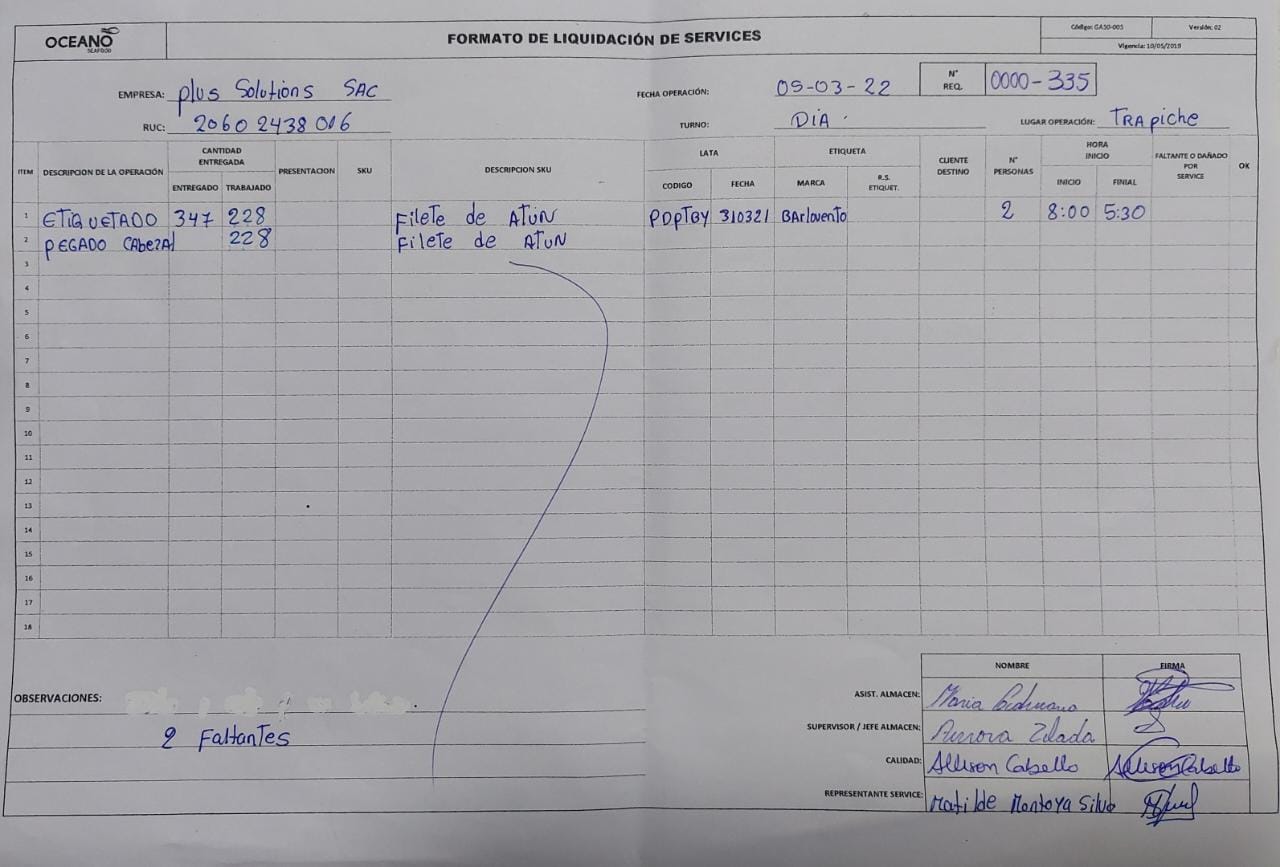 OCEANO
SEAFOOD
FORMATO DE LIQUIDACIÓN DE SERVICES
Código: GASO-005
Versión: 02
Vigencia: 10/05/2019
EMPRESA: plus Solutions SAC
FECHA OPERACIÓN: 05-03-22
N° REQ. 0000-335
RUC: 20602438016
TURNO: DIA
LUGAR OPERACIÓN: TRApiche
ITEM
DESCRIPCION DE LA OPERACIÓN
CANTIDAD ENTREGADA
ENTREGADO
TRABAJADO
PRESENTACION
SKU
DESCRIPCION SKU
LATA
CODIGO
FECHA
ETIQUETA
MARCA
R.S. ETIQUET.
CLIENTE DESTINO
N° PERSONAS
HORA INICIO
INICIO
FINIAL
FALTANTE O DAÑADO POR SERVICE
OK
1 ETIQUETADO 347 228 Filete de ATUN PDPTBY 310321 BArlovento 2 8:00 5:30
2 PEGADO CAbezAl 228 Filete de ATUN
3
4
5
6
7
8
9
10
11
12
13
14
15
16
17
18
OBSERVACIONES:
2 Faltantes
NOMBRE
FIRMA
ASIST. ALMACEN: Maria
SUPERVISOR / JEFE ALMACEN: Aurora Zelada
CALIDAD: Allison Cabello Allison Cabello
REPRESENTANTE SERVICE: Matilde Montoya Silva